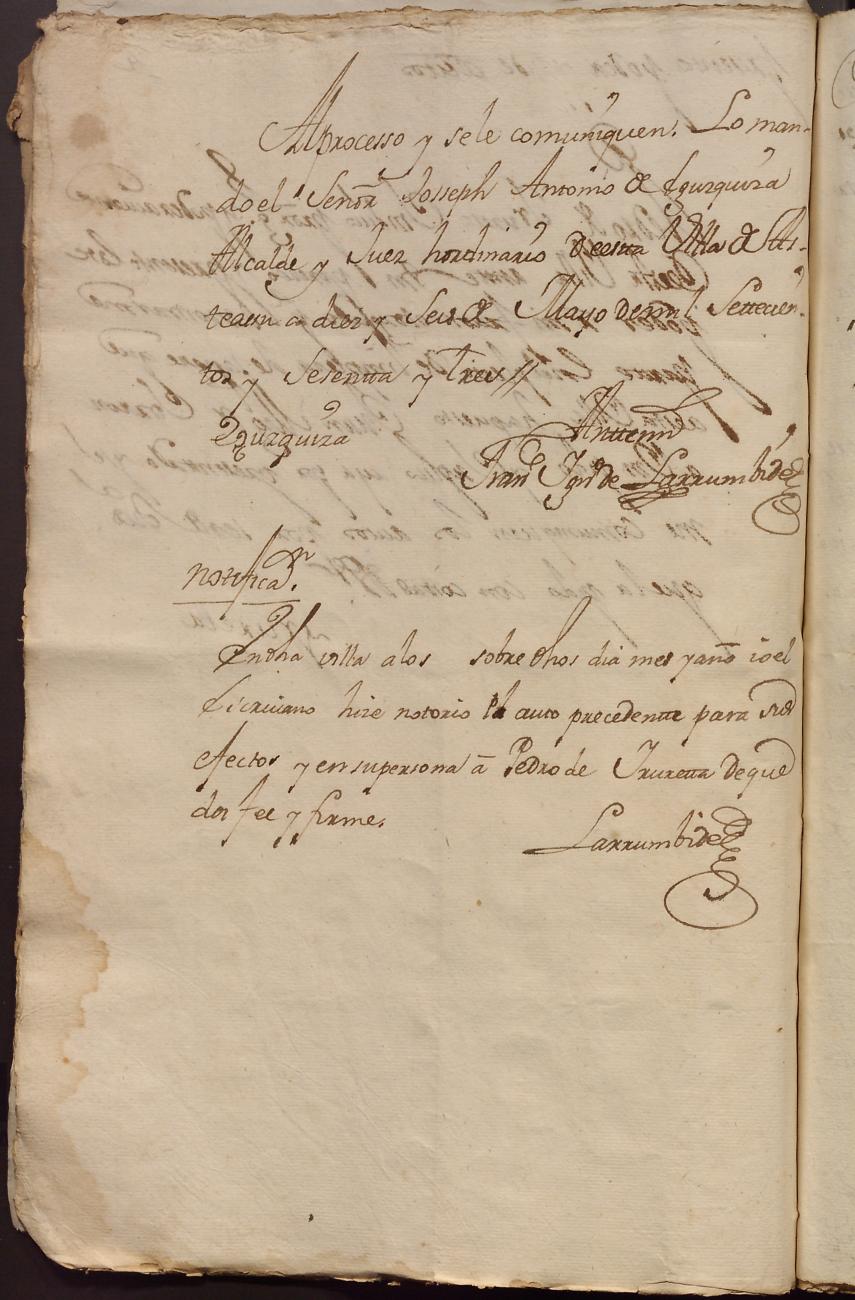 Al processo y se le comuniquen. Lo man-
do el Señor Josseph Antonio de Egurquiza
Alcalde y Juez hordinario de esta Villa de As-
teasu a diez y Seis de Mayo de mil Settecien-
tos y Sesentta y Tres //
Egurquiza Anttemi
Fran.co Ign.o de Larrumbide
Notificaz.n
En dha villa a los sobre dhos dia mes y año io el
Escriuano hize notorio el auto precedentte para sus
efectos y en su persona â Pedro de Iruretta de que
doi fee y firme.
Larrumbide